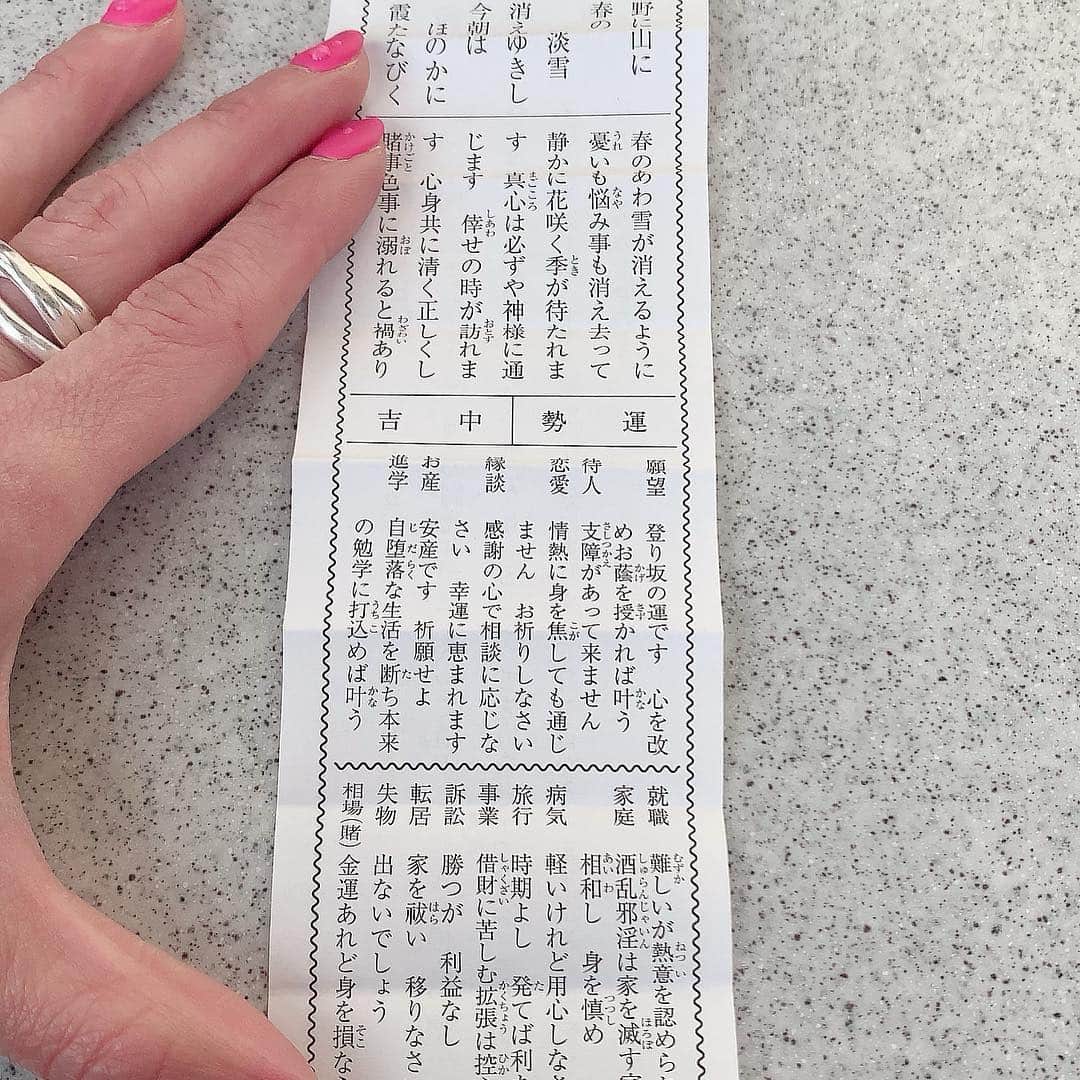 野に山に
春の
淡雪
消えゆきし
今朝は
ほのかに
霞たなびく
春のあわ雪が消えるように
憂いも悩み事も消え去って
静かに花咲く季が待たれま
す 真心は必ずや神様に通
じます 倖せの時が訪れま
す 心身共に清く正しくし
賭事色事に溺れると禍あり
運勢 中吉
願望 登り坂の運です 心を改
めお蔭を授かれば叶う
待人 支障があって来ません
恋愛 情熱に身を焦しても通じ
ません お祈りしなさい
縁談 感謝の心で相談に応じな
さい 幸運に恵まれます
お産 安産です 祈願せよ
進学 自堕落な生活を断ち本来
の勉学に打込めば叶う
就職 難しいが熱意を認めら
家庭 酒乱邪淫は家を滅す
相和し 身を慎め
病気 軽いけれど用心しな
旅行 時期よし 発てば利
事業 借財に苦しむ拡張は控
訴訟 勝つが 利益なし
転居 家を祓い 移りなさ
失物 出ないでしょう
相場(賭) 金運あれど身を損な